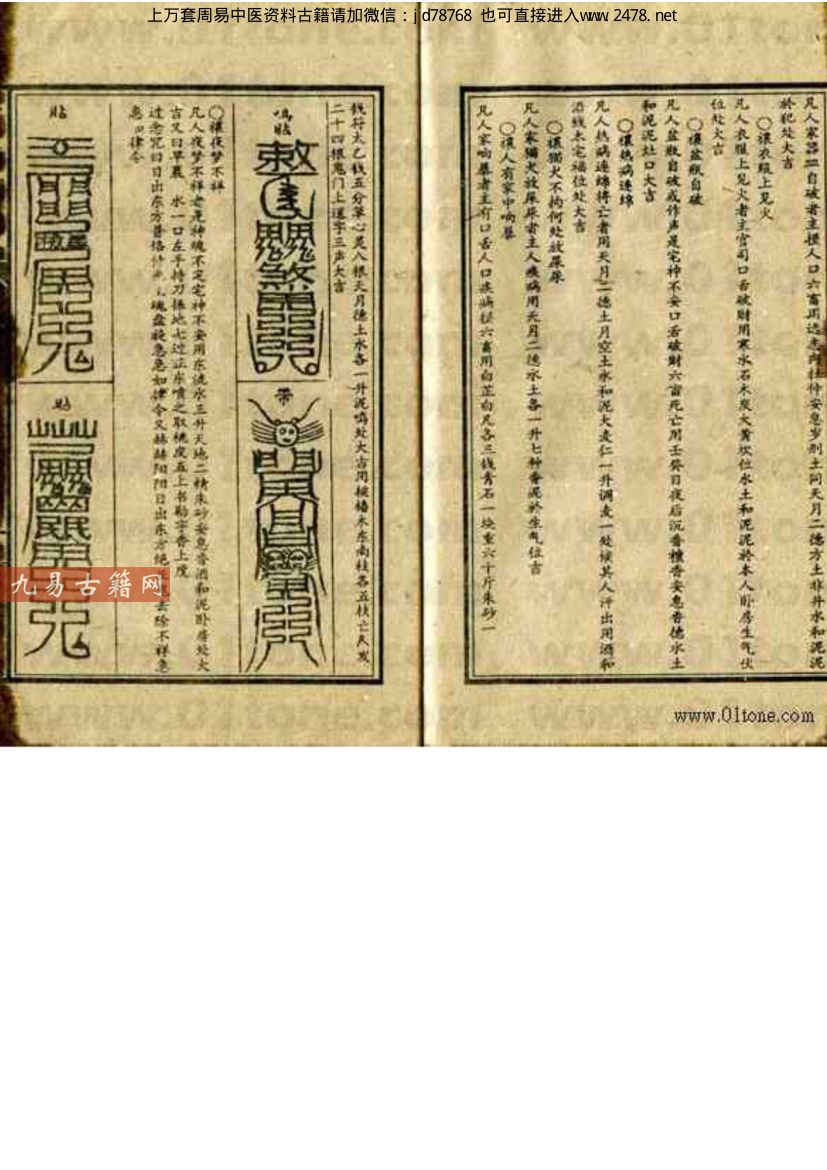 上万套周易中医资料古籍请加微信：jd78768 也可直接进入www.2478.net
凡人家器皿自破者主损人口六畜用远志肉桂仲安息岁刑土同天月二德方土非井水和泥泥
於犯处大吉
○禳衣服上见火
凡人衣服上见火者主官司口舌破财用寒水石木炭大黄坎位水土和泥泥於本人卧房生气伏
位处大吉
○禳盆瓶自破
凡人盆瓶自破或作声是宅神不安口舌破财六畜死亡用壬癸日夜后沉香檀香安息香德水土
和泥泥灶口大吉
○禳热病连绵
凡人热病连绵将亡者用天月二德土月空土水和泥大麦仁一升调麦一处候其人汗出用酒和
沿线太宅福位处大吉
○禳猫犬不拘何处放屎尿
凡人家猫犬放屎尿者主人疾病用天月二德水土各一升七种香泥於生气位吉
○禳人有家中响暴
凡人家响暴者主有口舌人口疾病损六畜用白芷白凡各三钱青石一块重六十斤朱砂一
钱符太乙钱五分草心灵八根天月德土水各一升泥鸣处大吉用桃椿木东南枝各五枝亡人发
二十四根鬼门上道字三声大吉
鸣貼
带
○禳夜梦不祥
凡人夜梦不祥者是神魂不定宅神不安用东流水三升天地二精朱砂安息香酒和泥卧房处大
吉又曰早晨 水一口左手持刀操地七过正东喷之取桃皮五上书勘字香上度
过念咒曰日出东方普格 魂盘旋急急如律令又赫赫阳阳日出东方绝 去除不祥急
急如律令
貼
貼
九易古籍网
www.01tone.com